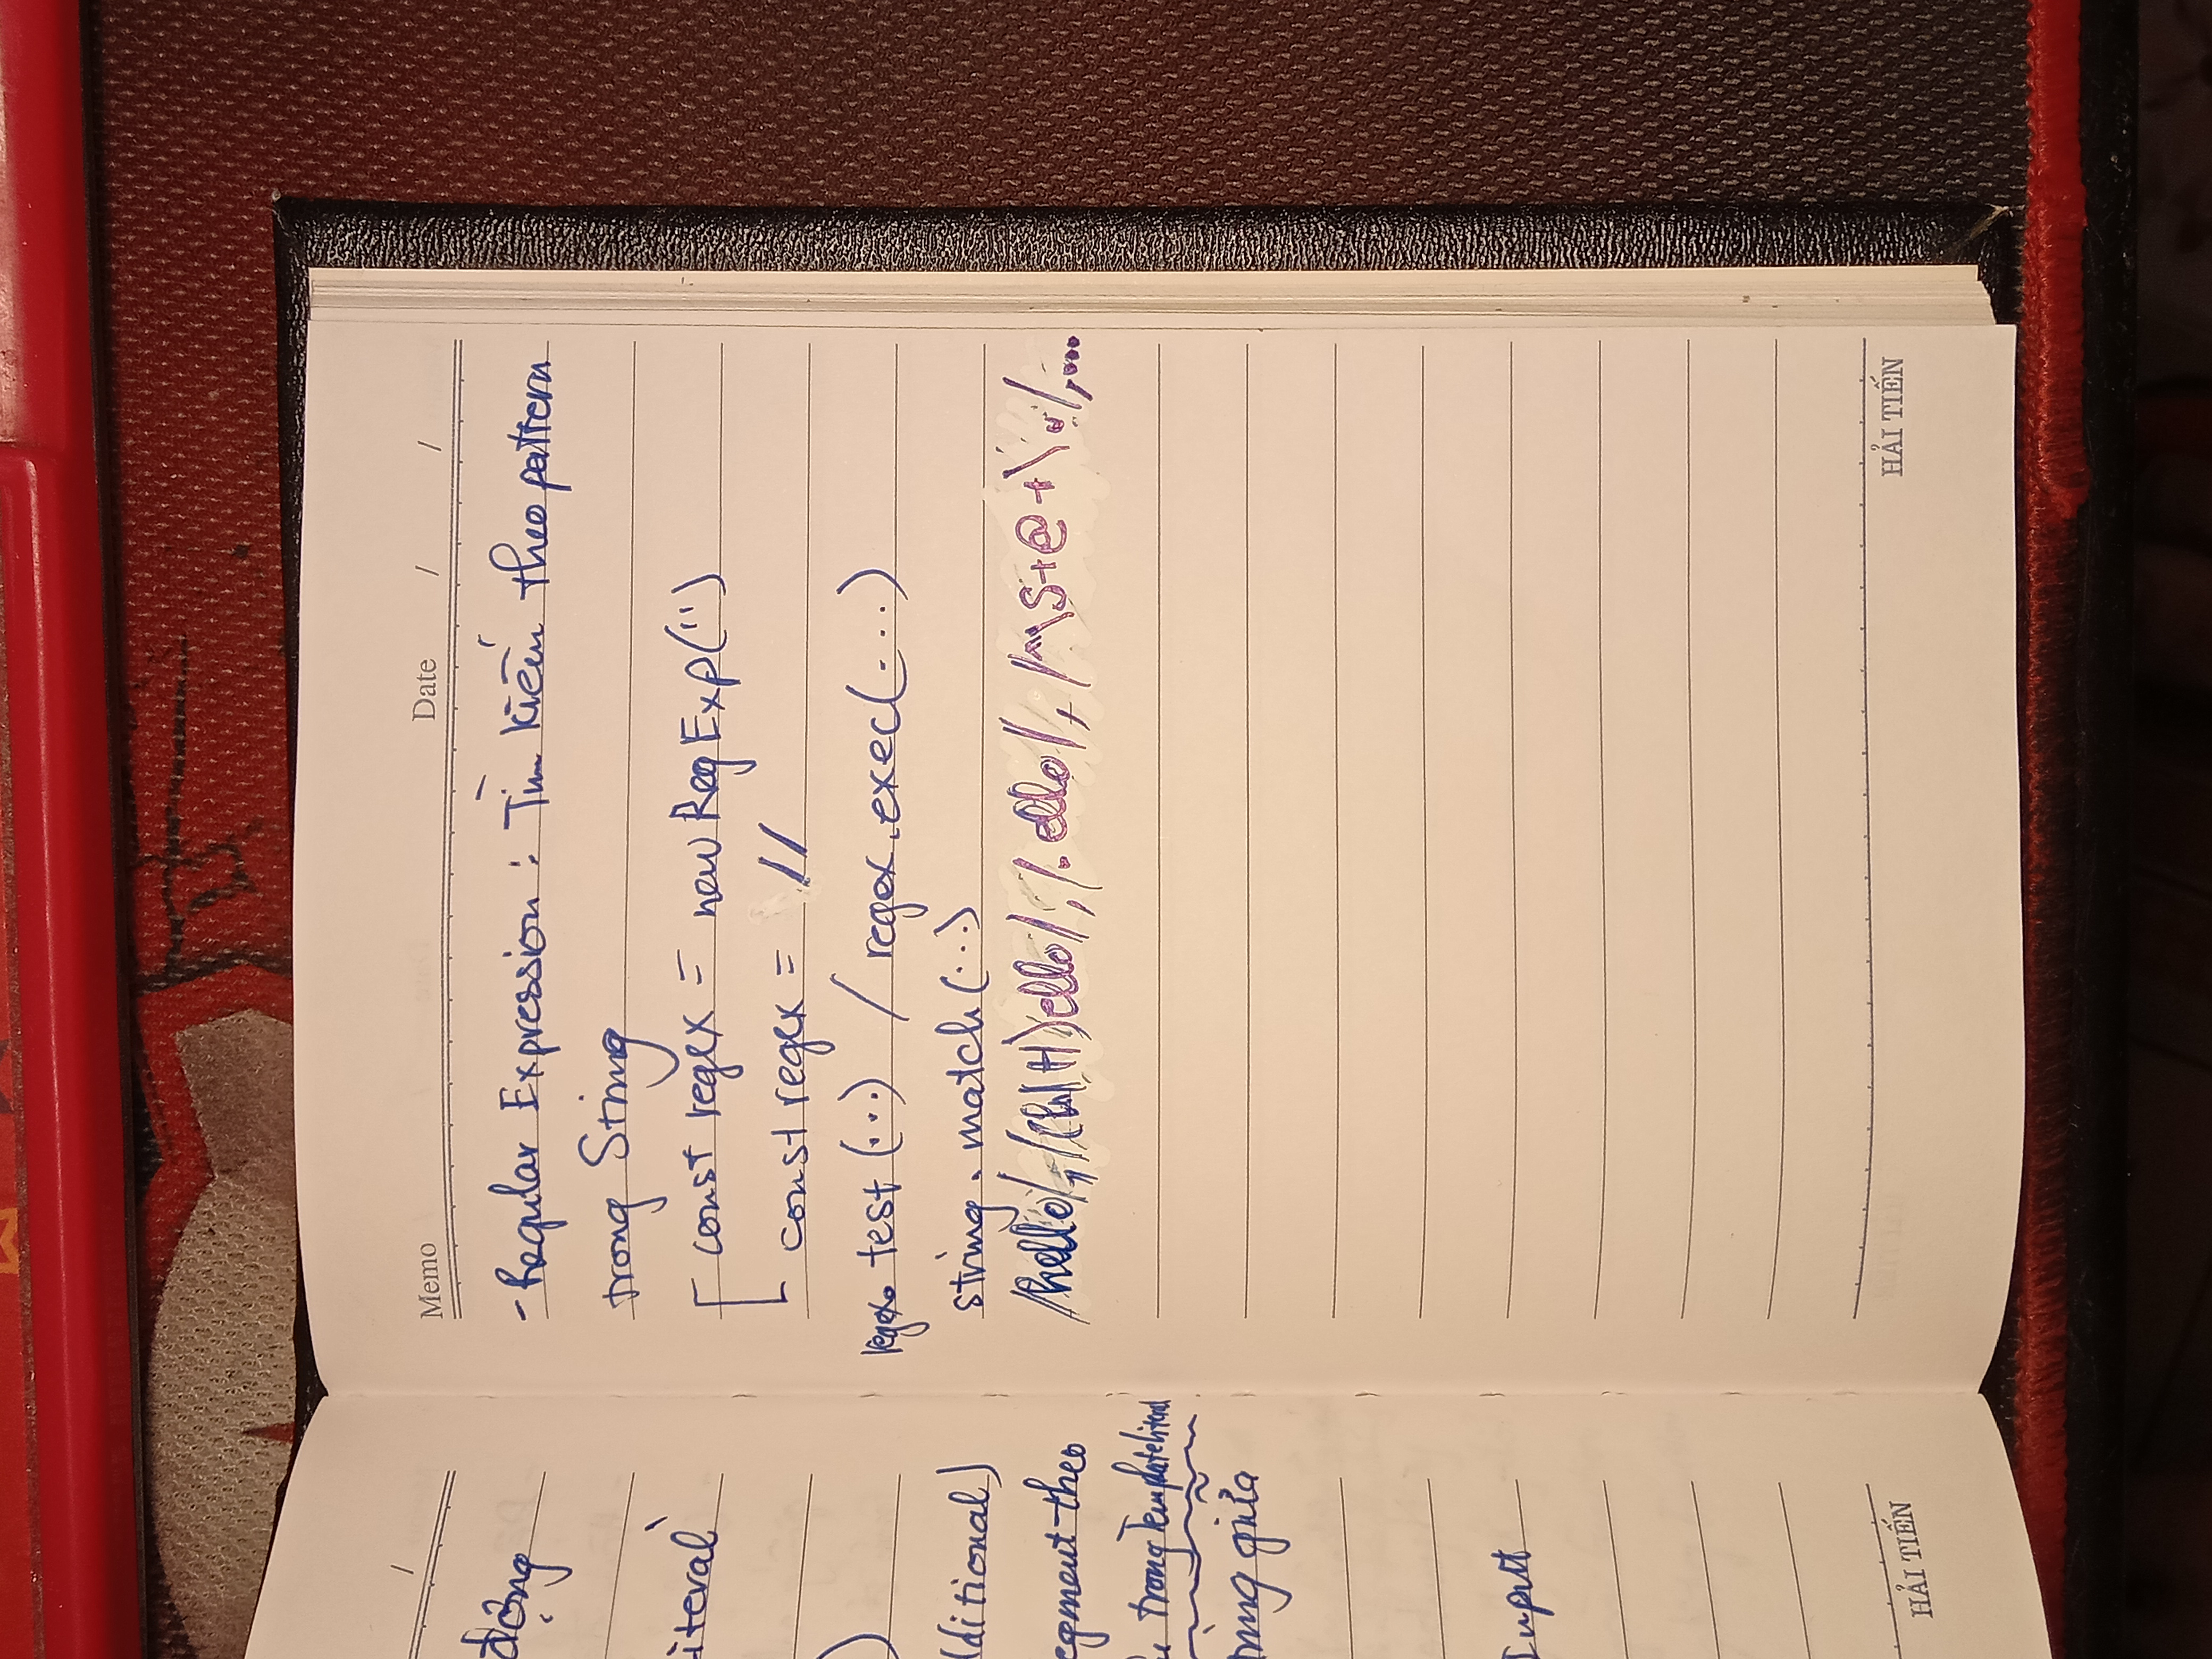 /
động
iteral
)
ditional)
egment theo
trong Template literal
giữa
Input
HẢI TIẾN
Memo Date / /
- Regular Expression : Tìm kiếm theo pattern
trong String
const regex = new RegExp('')
const regex = //
regex. test (...) / regex.exec(...)
string. match (...)
/hello/, /(h|H)ello/, /.ello/, /^\S+@+\./, ...
HẢI TIẾN